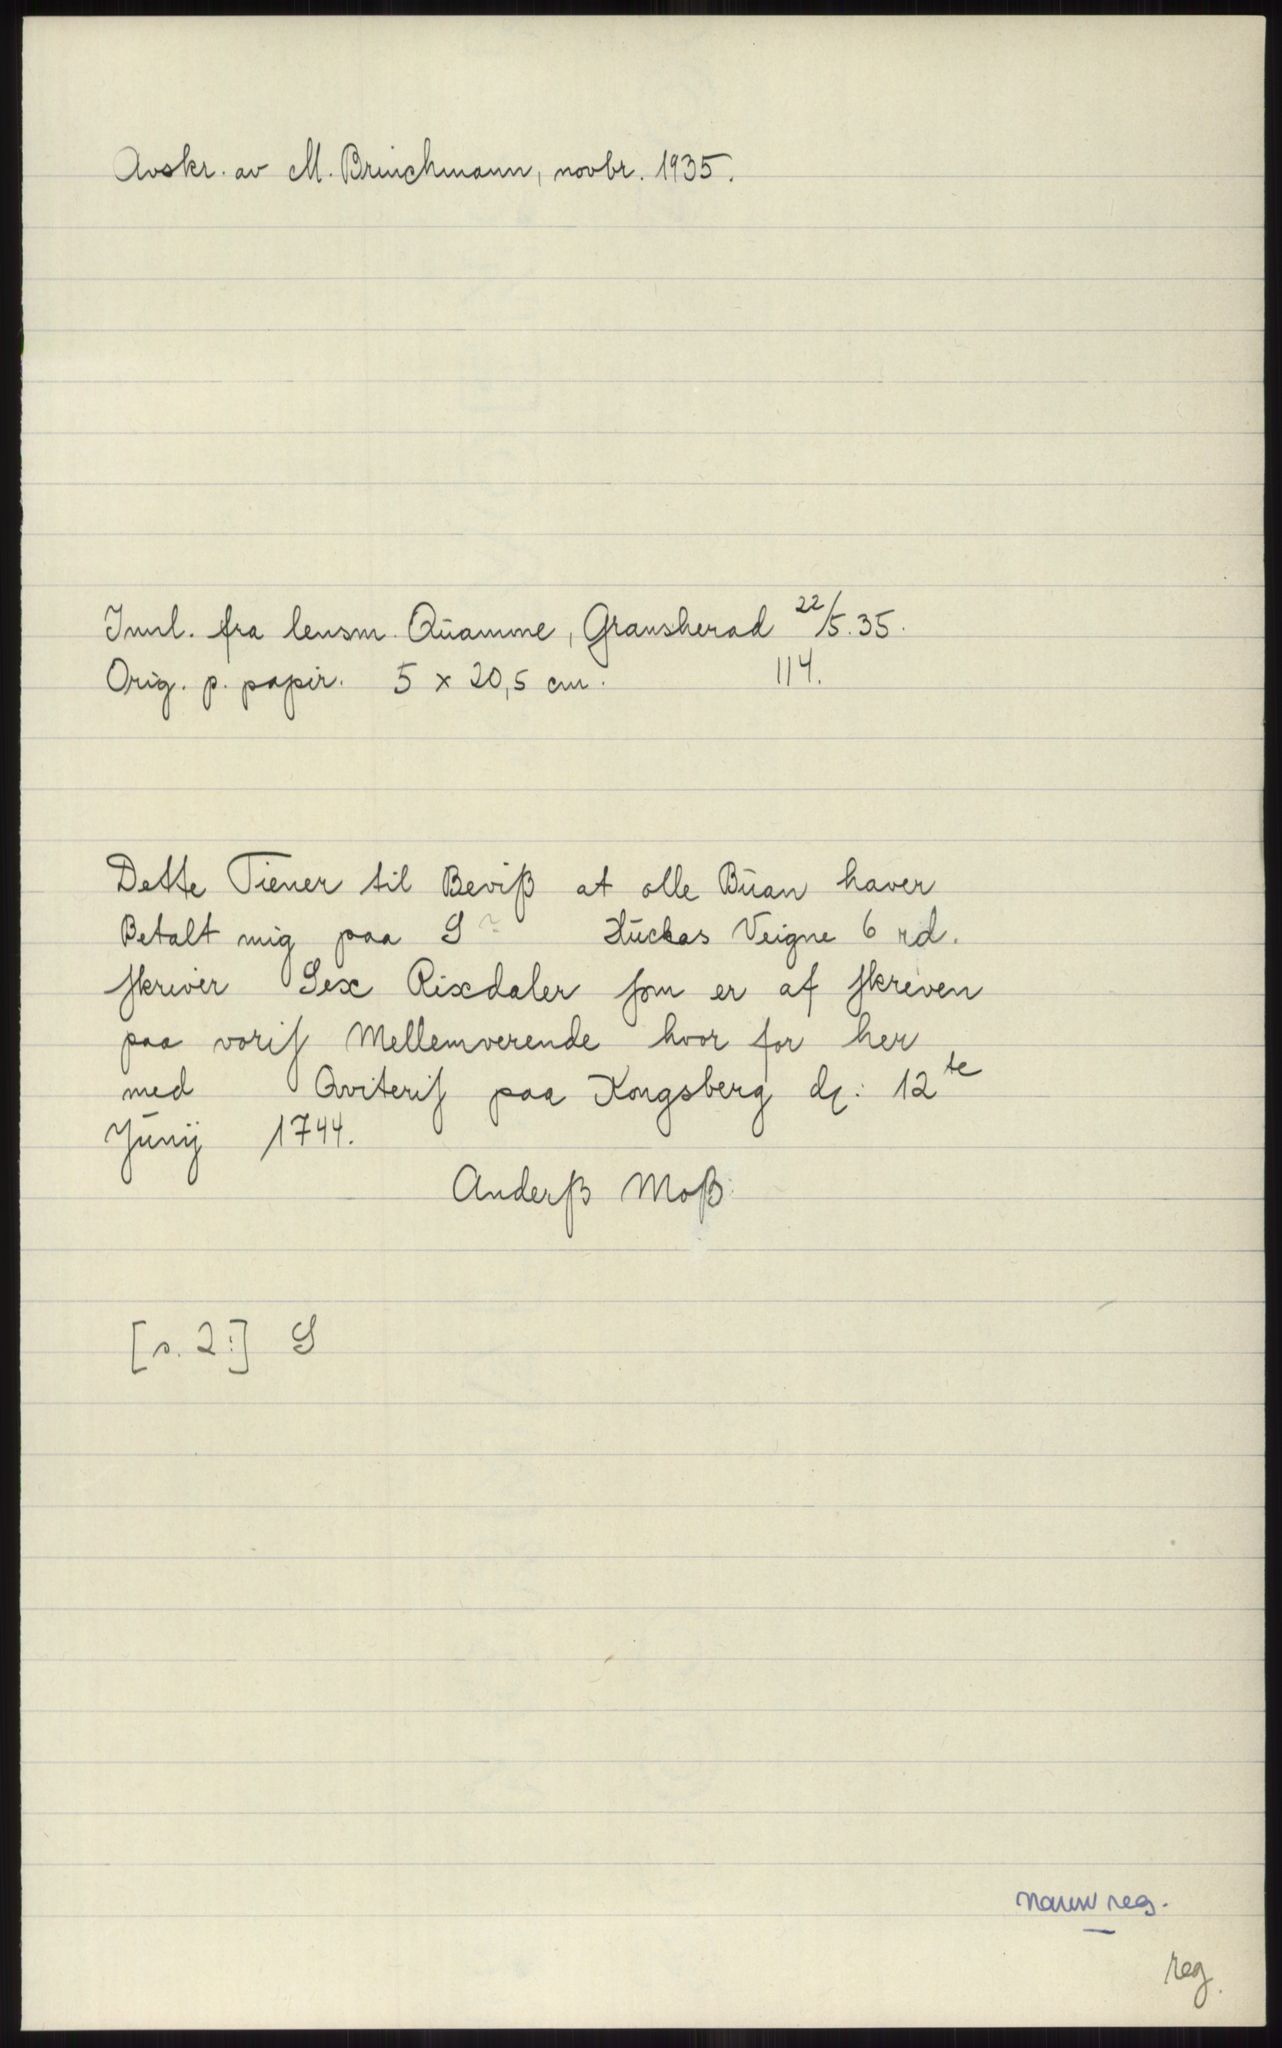 Avskr. av M. Brinchmann, novbr. 1935.
Innl. fra lensm. Qŭamme, Gransherad 22/5.35.
Orig. p. papir. 5 x 20,5 cm. 114.
Dette Tiener til Beviß at olle Bŭan haver
Betalt mig paa S Hŭckas Veigne 6 rd.
skriver Sex Rixdaler som er af skreven
paa voris Mellemverende hvor for her
med Qviteris paa Kongsberg d: 12te
Jŭnij 1744.
Anderß Moß
[s. 2:] S
navnreg.
reg.